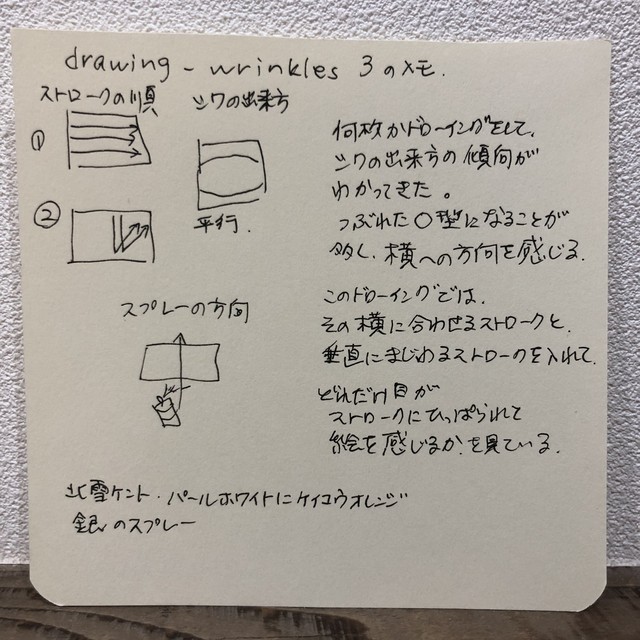 drawing - wrinkles 3 のメモ.
ストロークの順
①
②
シワの出来方
平行.
スプレーの方向
何枚かドローイングをして、
シワの出来方の傾向が
わかってきた。
つぶれた〇型になることが
多く、横への方向を感じる.
このドローイングでは、
その横に合わせるストロークと、
垂直にまじわるストロークを入れて、
どれだけ目が
ストロークにひっぱられて
絵を感じるか、を見ている.
北雪ケント・パールホワイトにケイコウオレンジ
銀のスプレー